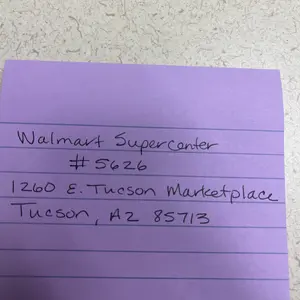 Walmart Supercenter
#5626
1260 E. Tucson Marketplace
Tucson, AZ 85713